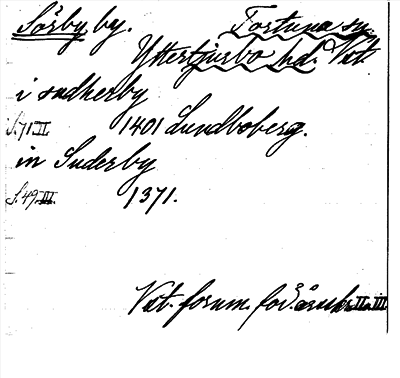 Sörby by. Tortuna sn.
Yttertjurbo hd. Vstm.
i sudherby
S. 71 II 1401 Lundboberg.
in Suderby
S. 49 III. 1371.
Vst. fornm. för. årsskr. II. III